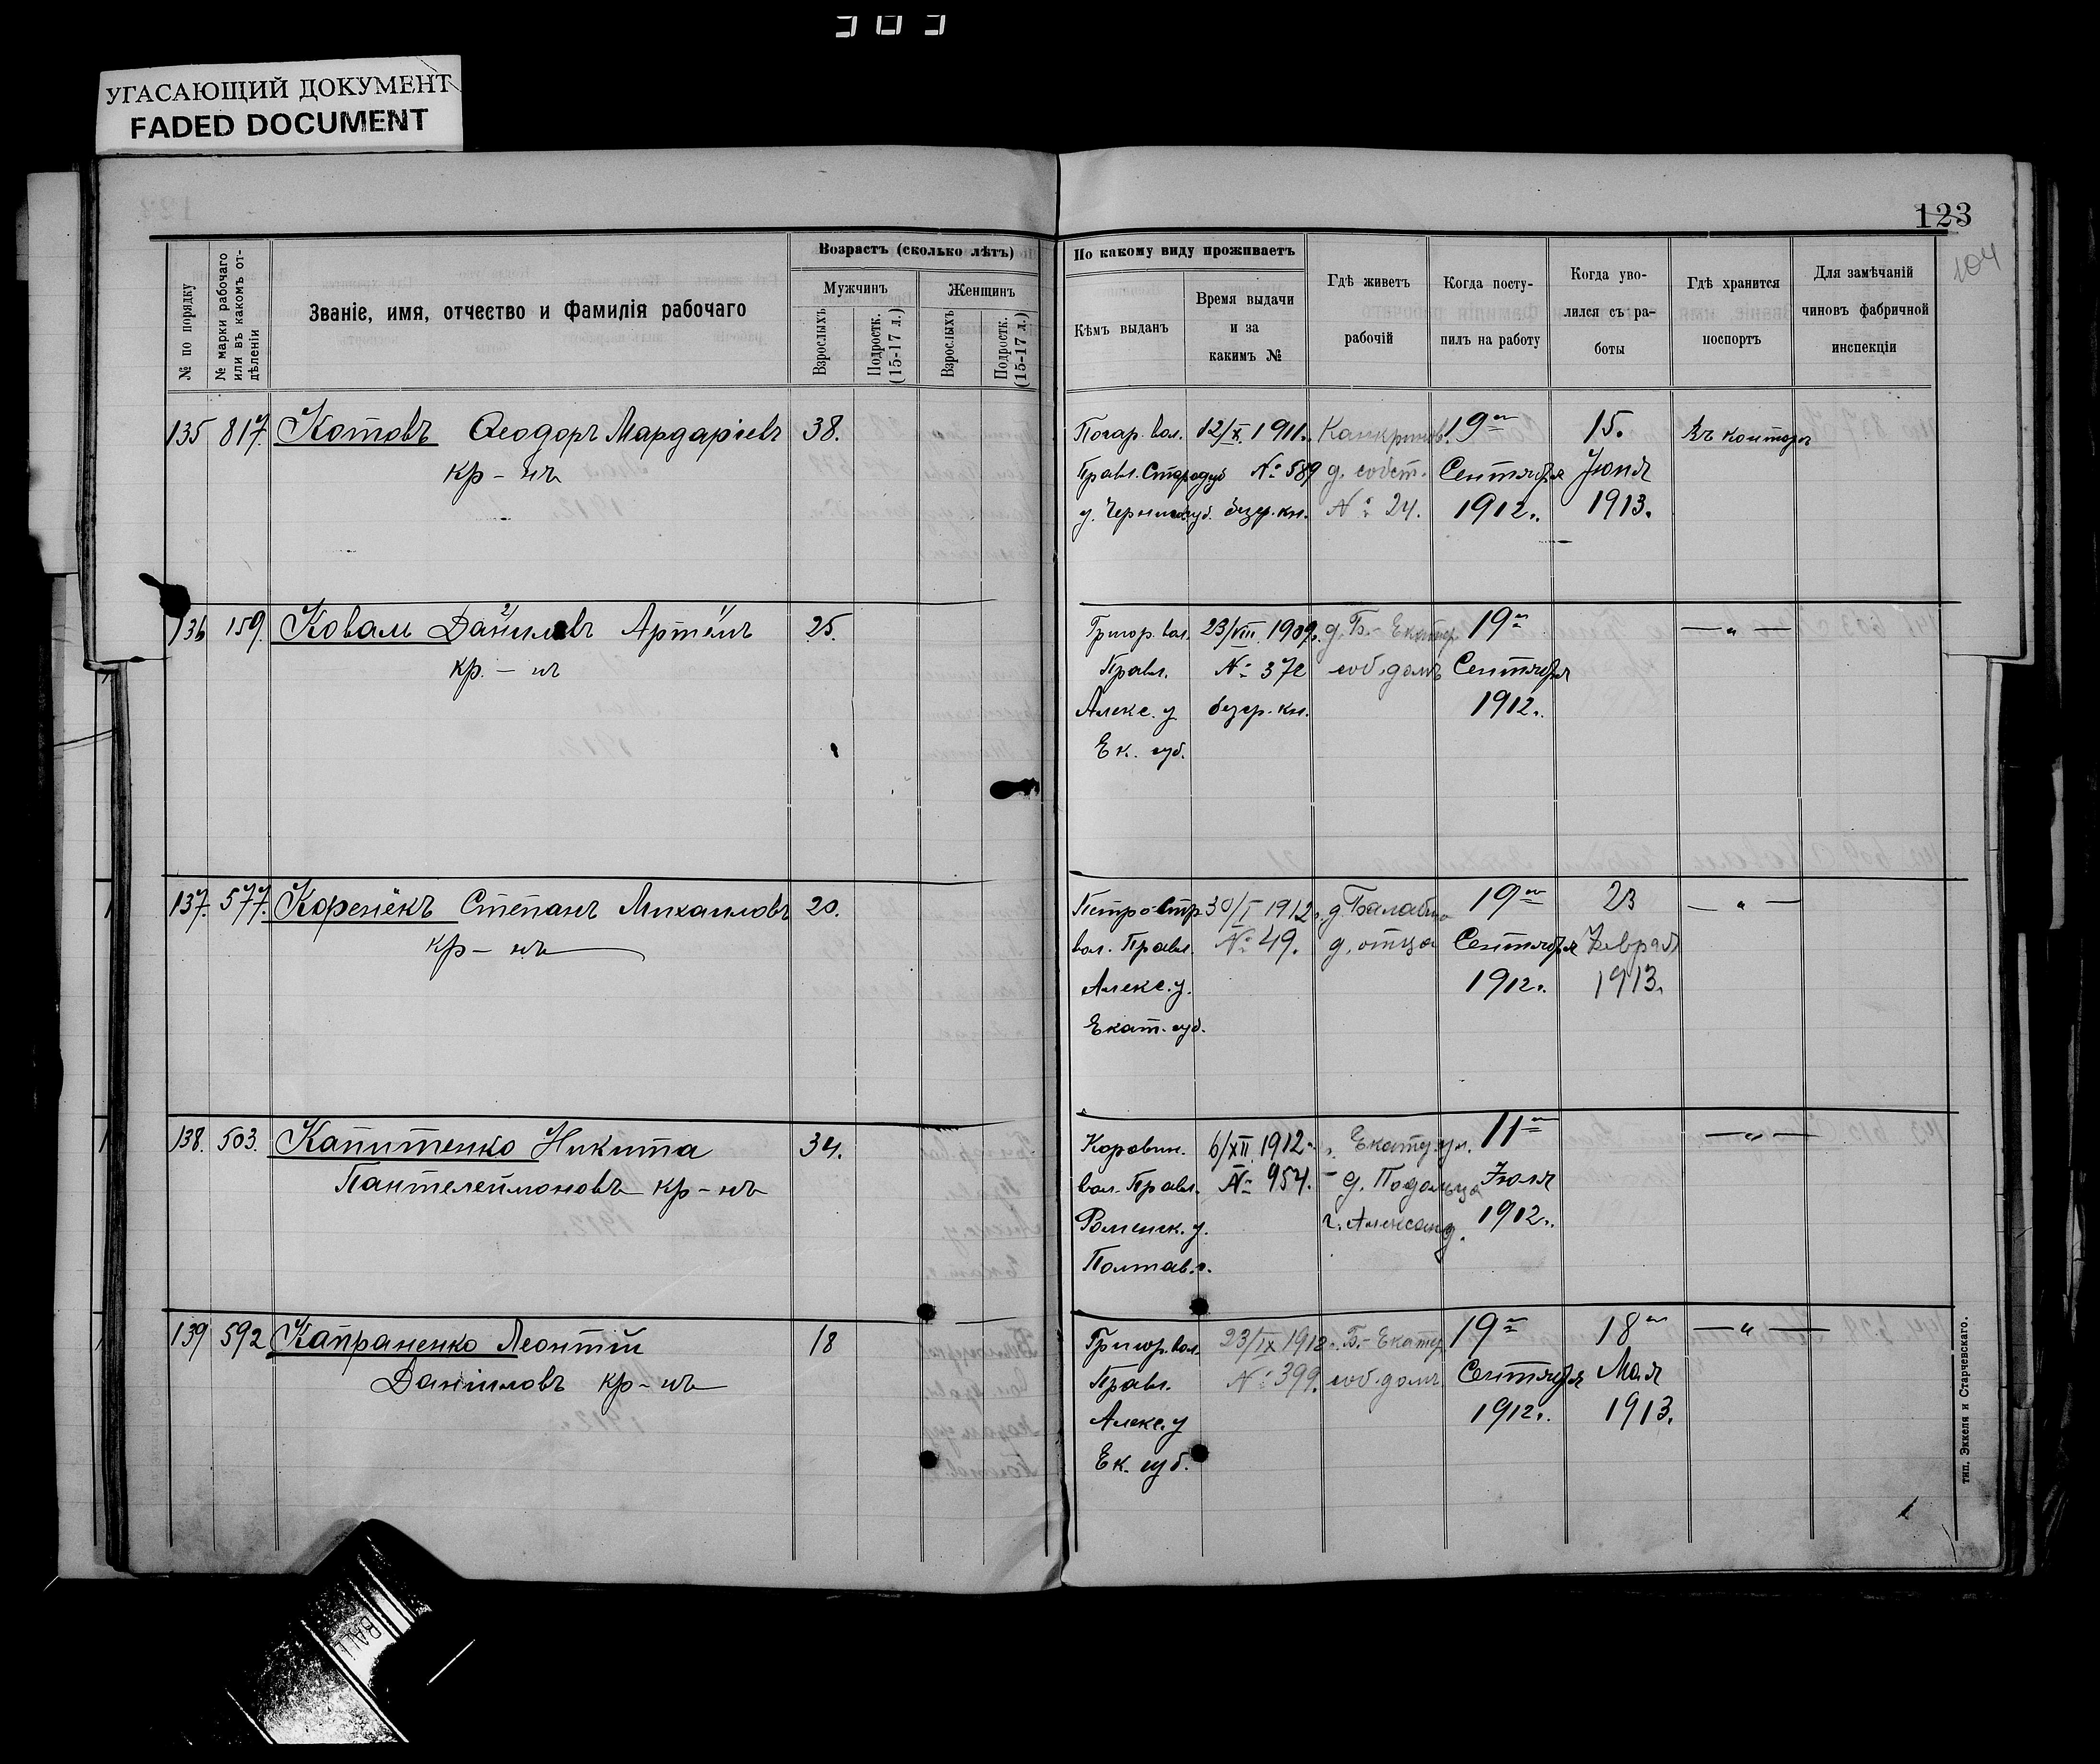 УГАСАЮЩИЙ ДОКУМЕНТ
FADED DOCUMENT
123
104
№ по порядку
№ марки рабочаго или въ какомъ отдѣленіи
Званіе, имя, отчество и Фамилія рабочаго
Возрастъ (сколько лѣтъ)
Мужчинъ
Женщинъ
Взрослыхъ
Подростк. (15-17 л.)
Взрослыхъ
Подростк. (15-17 л.)
По какому виду проживаетъ
Кѣмъ выданъ
Время выдачи
и за
какимъ №
Гдѣ живетъ
рабочій
Когда посту-
пилъ на работу
Когда уво-
лился съ ра-
боты
Гдѣ хранится
поспортъ
Для замѣчаній
чиновъ фабричной
инспекціи
135 817. Котовъ Ѳеодоръ Мардаріевъ 38. Погар. вол. 12/X. 1911. 19го 15. Въ конторѣ
кр-нъ Правл. Стародуб № 589 д. собст. Сентября Іюня
у. Черниг. губ. безср. кн. № 24. 1912. 1913.
136 159. Коваль Данилов Артёмъ 25. Григор. вол. 23/VIII. 1909. д. Б.-Екатер 19го — „ —
кр.-нъ Правл. № 372 соб. домъ Сентября
Алекс. у безср. кн. 1912.
Ек. губ.
137. 577. Коренёкъ Степанъ Михаиловъ 20. Петро-Стр 30/I 1912. д. Балабино 19го 23 — „ —
кр-нъ вол. Правл. № 49. д. отца Сентября Феврал
Алекс. у. 1912. 1913.
Екат. губ.
138. 503. Капитенко Никита 34. Коровин. 6/XII. 1912. Екатер. ул. 11го — „ —
Пантелеймоновъ кр-нъ вол. Правл. № 954. д. Подольца Іюля
Роменск. у. г. Александ. 1912.
Полтав. г.
139 592 Капраненко Леонтій 18 Григор. вол. 23/IX 1912. Б.-Екатер 19го 18го — „ —
Даніиловъ кр-нъ Правл. № 399. соб. домъ Сентября Мая
Алекс. у 1912. 1913.
Ек. губ.
тип. Эккеля и Старчевскаго.
BALL